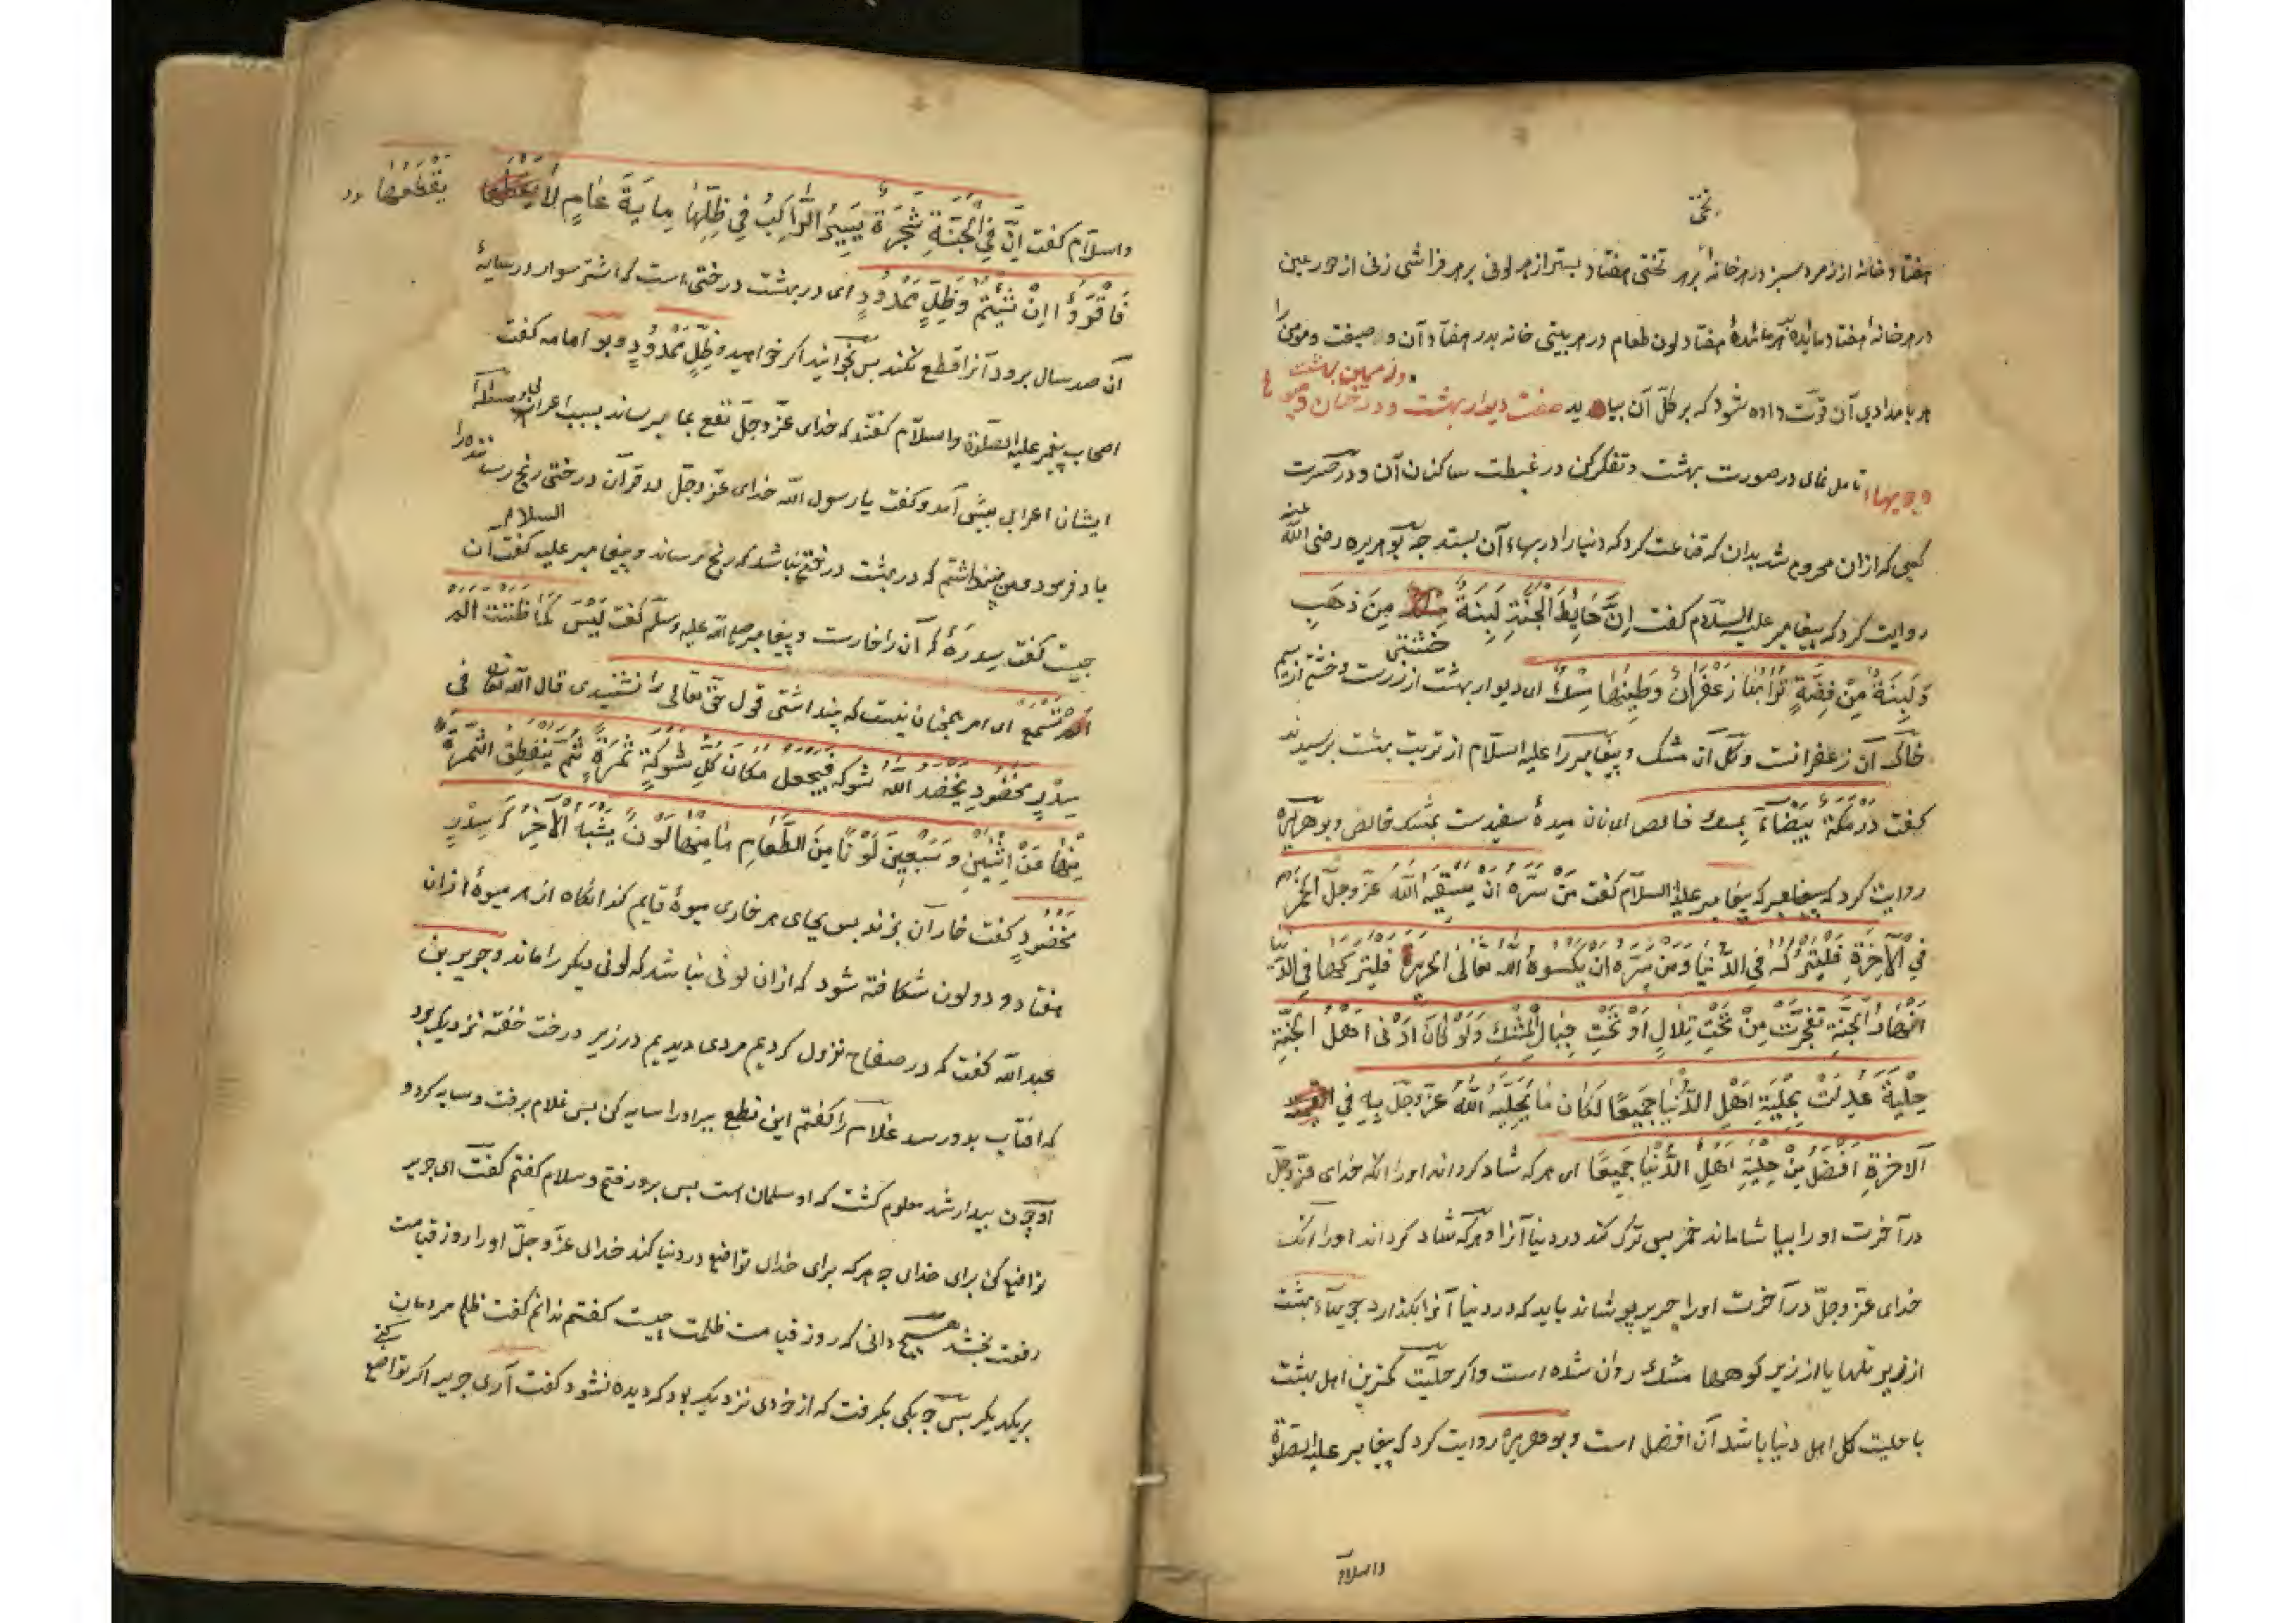 تختی
هفتاد خانه از زمرد سبز در هر خانهٔ بر هر تختی هفتاد بستر از هر لونی بر هر فراشی زنی از حور عین
در هر خانهٔ هفتاد مایده بر هر مائدهٔ هفتاد لون طعام در هر بیتی خانه بدر هفتاد آن وصیفت و مومن را
هر بامدادی آن قوت داده شود که بر کل آن بیاید صفت دیوار بهشت و درختان و میوها
و زمین بهشت
و جویها تامل نمای در صورت بهشت و تفکر کن در غبطت ساکنان آن و در حسرت
کسی که ازان محروم شد بدان که قناعت کرد که دنیا را در بهاء آن بستد چه بوهریره رضی الله عنه
روایت کرد که پیغامبر علیه السلام گفت اِنَّ حَایِطَ الْجَنَّةِ لَبِنَةٌ مِنَ ذَهَبٍ
وَلَبِنَةٌ مِنْ فِضَّةٍ تُرَابُهَا زَعْفَرَانٌ وَطِینُهَا مِسْكٌ ای دیوار بهشت از زرست و خشتی از سیم
خشتی
خاک آن زعفرانست و کل آن مشک و پیغامبر را علیه السلام از تربت بهشت پرسیدند
گفت دَرْمَکَة بَیْضَاء مسك خالص ای نان میدهٔ سفیدست بمشک خالص و بوهریره
روایت کرد که پیغامبر علیه السلام گفت مَنْ سَرَّهُ اَنْ یَسْقِیَهُ اللّٰهُ عَزَّ وَجَلَّ الْخَمْرَ
فِی الْآخِرَةِ فَلْیَتْرُکْهُ فِی الدُّنْیَا وَمَنْ سَرَّهُ اَنْ یَکْسُوَهُ اللّٰهُ تَعَالٰی الْحَرِیرَ فَلْیَتْرُکْهَا فِی الدُّنْیَا
اَنْهَارُ الْجَنَّةِ تَفَجَّرَتْ مِنْ تَحْتِ تِلَالٍ اَوْ تَحْتِ جِبَالِ الْمِسْكِ وَلَوْ کَانَ اَدْنٰی اَهْلُ الْجَنَّةِ
حِلْیَةً عُدِلَتْ بِحِلْیَةِ اَهْلِ الدُّنْیَا جَمِیعًا لَکَانَ مَا یُحَلِّیهِ اللّٰهُ عَزَّ وَجَلَّ بِهِ فِی
الْآخِرَةِ اَفْضَلُ مِنْ حِلْیَةِ اَهْلِ الدُّنْیَا جَمِیعًا ای هر که شاد کرداند او را انکه خدای عز وجل
در آخرت او را بیاشاماند خمر پس ترک کند در دنیا آنرا و هر که شاد کرداند او را انک
خدای عز وجل در آخرت او را حریر پوشاند باید که در دنیا آنرا بکذارد جویهاء بهشت
از زیر تلها یا از زیر کوهها مشك روان شده است و اکر حلیت کمترین اهل بهشت
با حلیت کل اهل دنیا باشد آن افضل است و بوهریره روایت کرد که پیغامبر علیه الصلوة
والسلام
والسلام گفت اِنَّ فِی الْجَنَّةِ شَجَرَةً یَسِیرُ الرَّاکِبُ فِی ظِلِّهَا مِایَةَ عَامٍ لَا یَقْطَعُهَا
فَاقْرَؤُا اِنْ شِئْتُمْ وَظِلٍّ مَمْدُودٍ ای در بهشت درختی است که اشتر سوار در سایهٔ
آن صد سال برود آنرا قطع نکند پس بخوانید اکر خواهید وظل ممدود و بو امامه گفت
اصحاب پیغمبر علیه الصلوة والسلام گفتند که خدای عز وجل نفع بما میرساند بسبب اعراب
ایشان اعرابی پیش آمد و گفت یا رسول الله خدای عز وجل در قرآن درختی رنج رساننده را
یاد فرمود و من نپنداشتم که در بهشت درختی باشد که رنج رساند و پیغامبر علیه السلام گفت آن
چیست گفت سدرهٔ که آن را خارست و پیغامبر صلی الله علیه وسلم گفت لَیْسَ کَمَا ظَنَنْتَ الم
تَسْمَع ای امر بهمچنان نیست که پنداشتی قول حق تعالی را نشنیدی قال الله تعالی فی
سِدْرٍ مَخْضُودٍ یَخْضِدُ اللّٰهُ شَوْکَهُ فَیَجْعَلُ مَکَانَ کُلِّ شَوْکَةٍ ثَمَرَةً ثُمَّ یَنْفَطِقُ الثَّمَرَةُ
مِنْهَا عَنْ اِثْنَیْنِ وَسَبْعِینَ لَوْنًا مِنَ الطَّعَامِ مَا مِنْهَا لَوْنٌ یُشْبِهُ الْآخَرَ که سِدْرٍ
مَخْضُودٍ گفت خار آن بزند پس بجای هر خاری میوهٔ قایم کند انکاه از هر میوهٔ ازان
هفتاد و دو لون شکافته شود که ازان لونی نباشد که لونی دیکر را ماند و جریر بن
عبد الله گفت که در صفاح نزول کردیم مردی دیدیم در زیر درخت خفته نزدیک بود
که افتاب بدو رسد غلام را گفتم این نطع ببر او را سایه کن پس غلام برفت و سایه کرد و
او چون بیدار شد معلوم کشت که او سلمان است پس برو رفتم و سلام گفتم گفت ای جریر
تواضع کن برای خدای چه هر که برای خدای تواضع در دنیا کند خدای عز وجل او را روز قیامت
رفعت بخشد هیچ دانی که روز قیامت ظلمت چیست گفتم ندانم گفت ظلم مردمان
بر یکدیکر پس چوبکی بکرفت که از خردی نزدیک بود که دیده نشود گفت آری جریر اکر تواضع
کنی